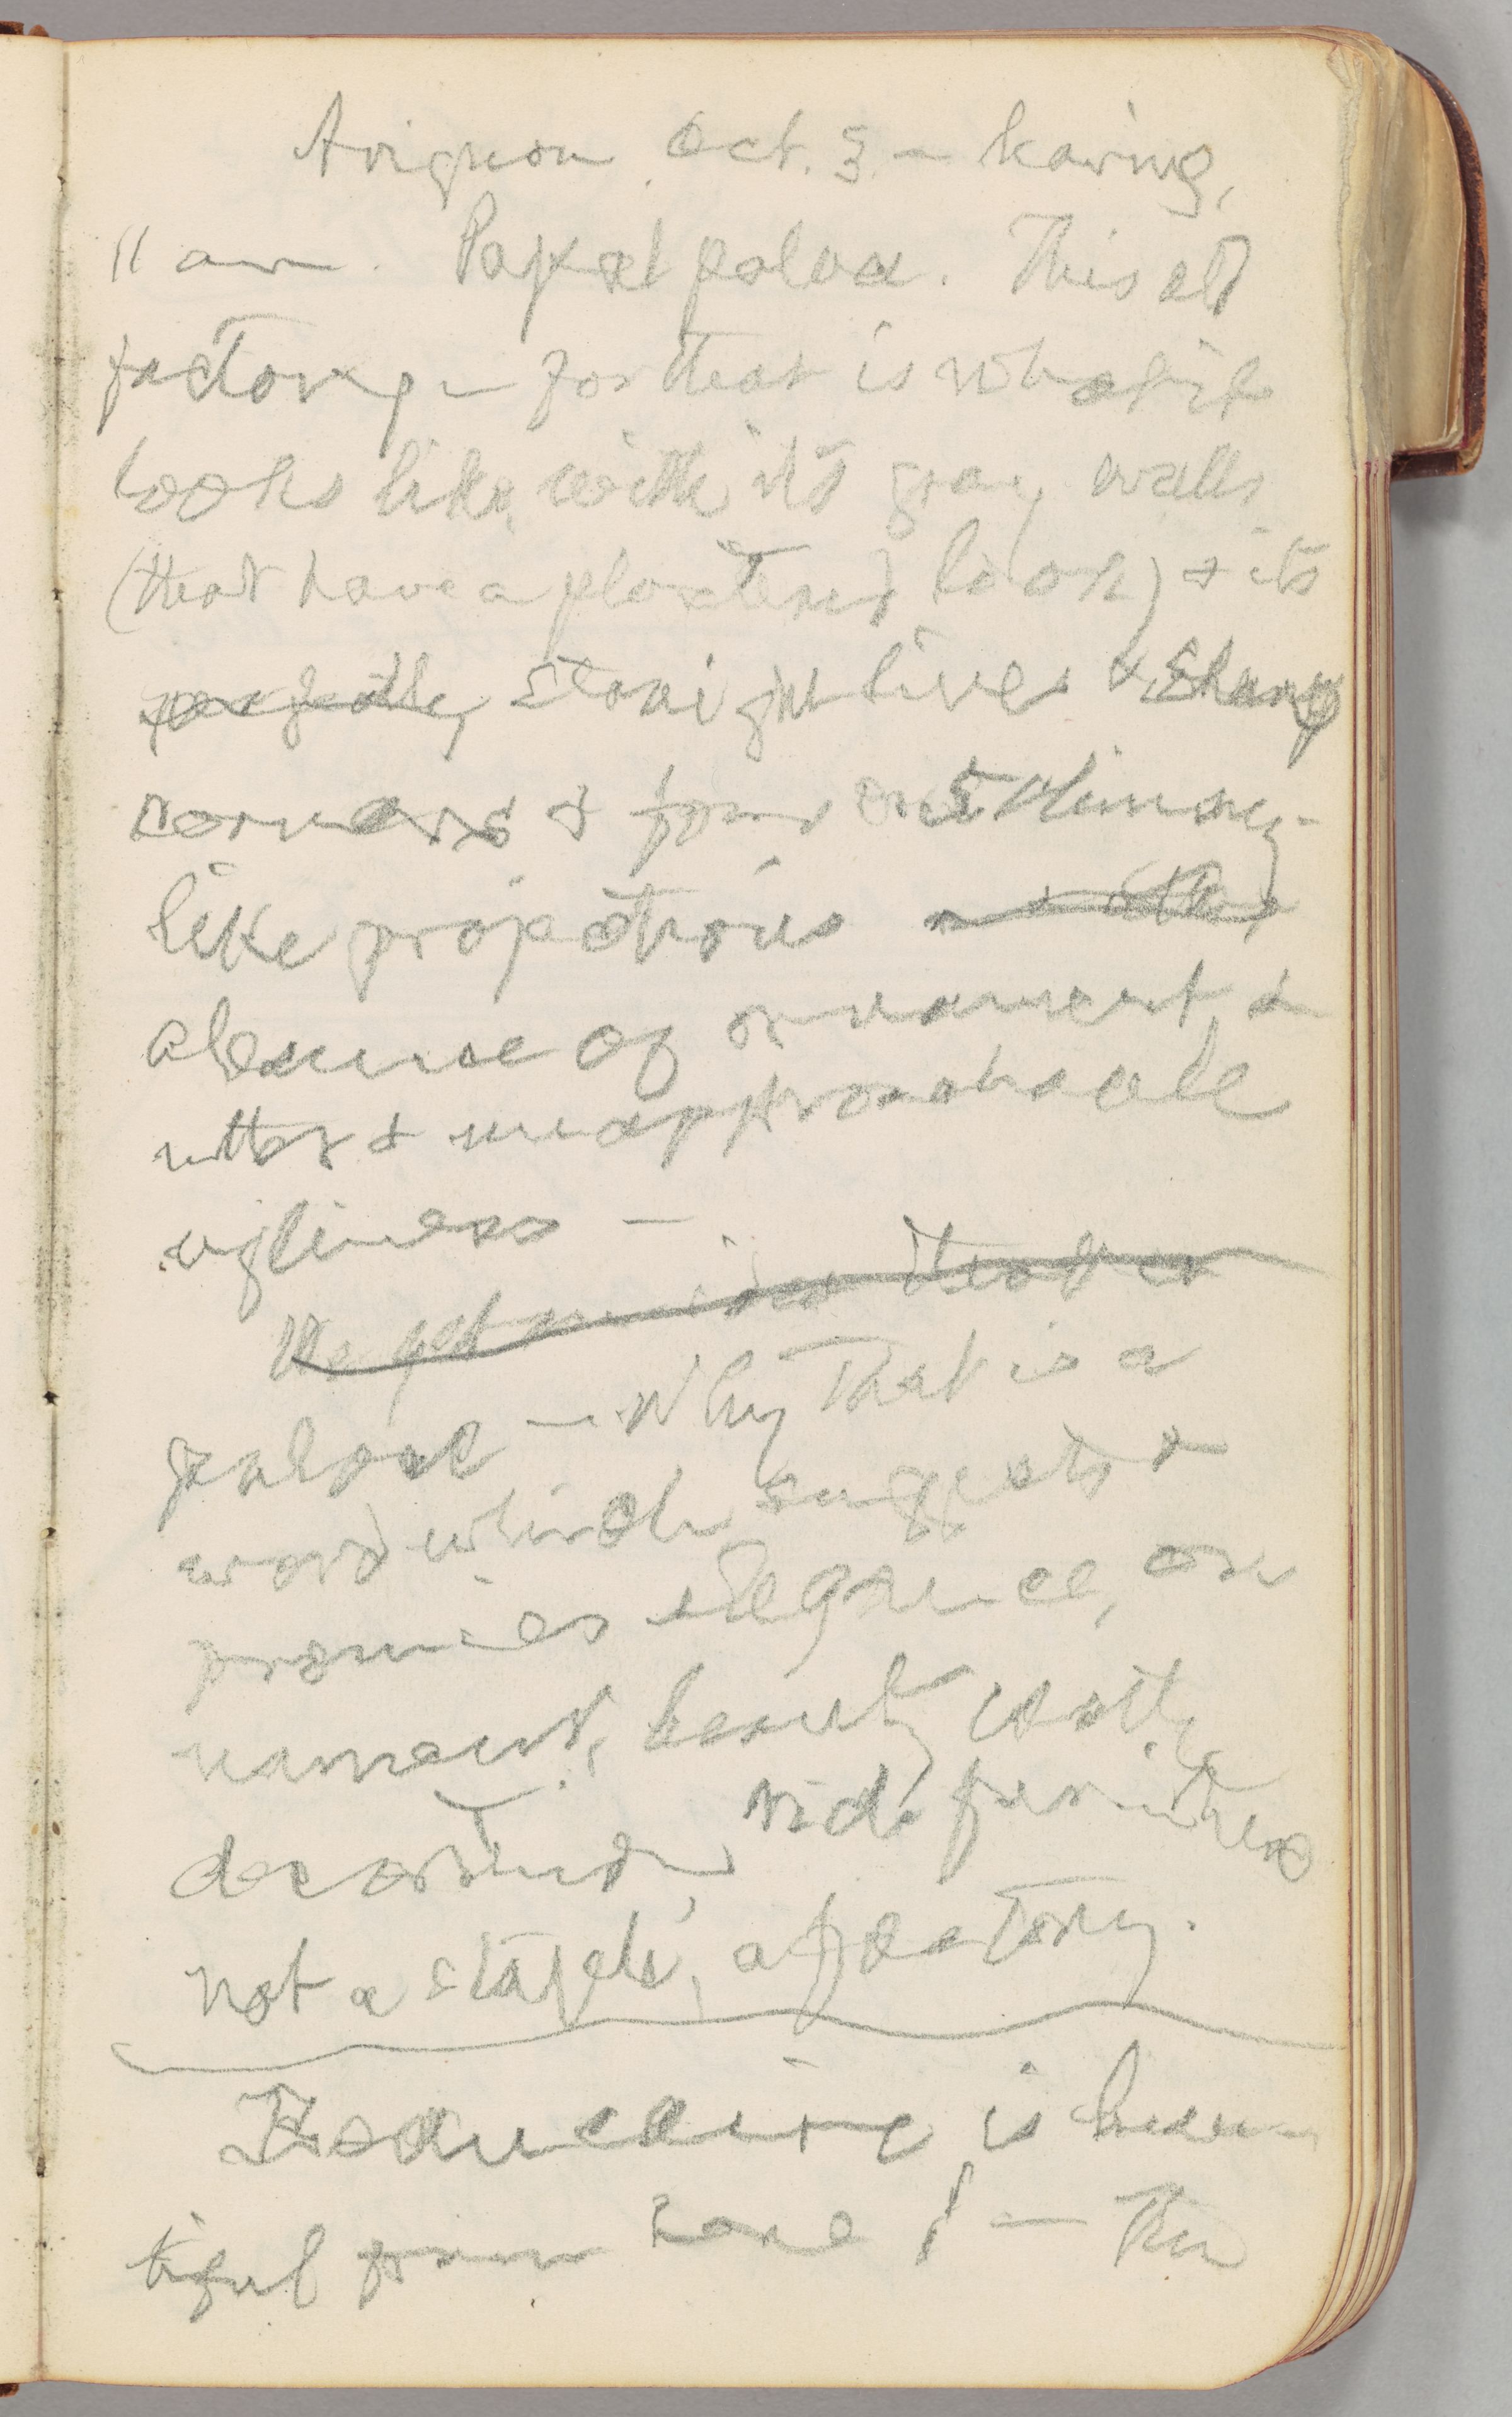 Avignon Oct. 3. — leaving,
11 am. Papal palace. This old
factory — for that is what it
looks like, with its gray walls
(that have a plastered look) & its
perfectly straight lines & sharp
corners & four chimney-
like projections
absence of ornament, &
utter & unapproachable
ugliness —
We get an idea that a
palace — Why that is a
word which suggests &
promises elegance, or
nament, beauty, costly
decoration, rich furniture
not a staple, a factory.
Beaucaire is beau-
tiful from here! — The